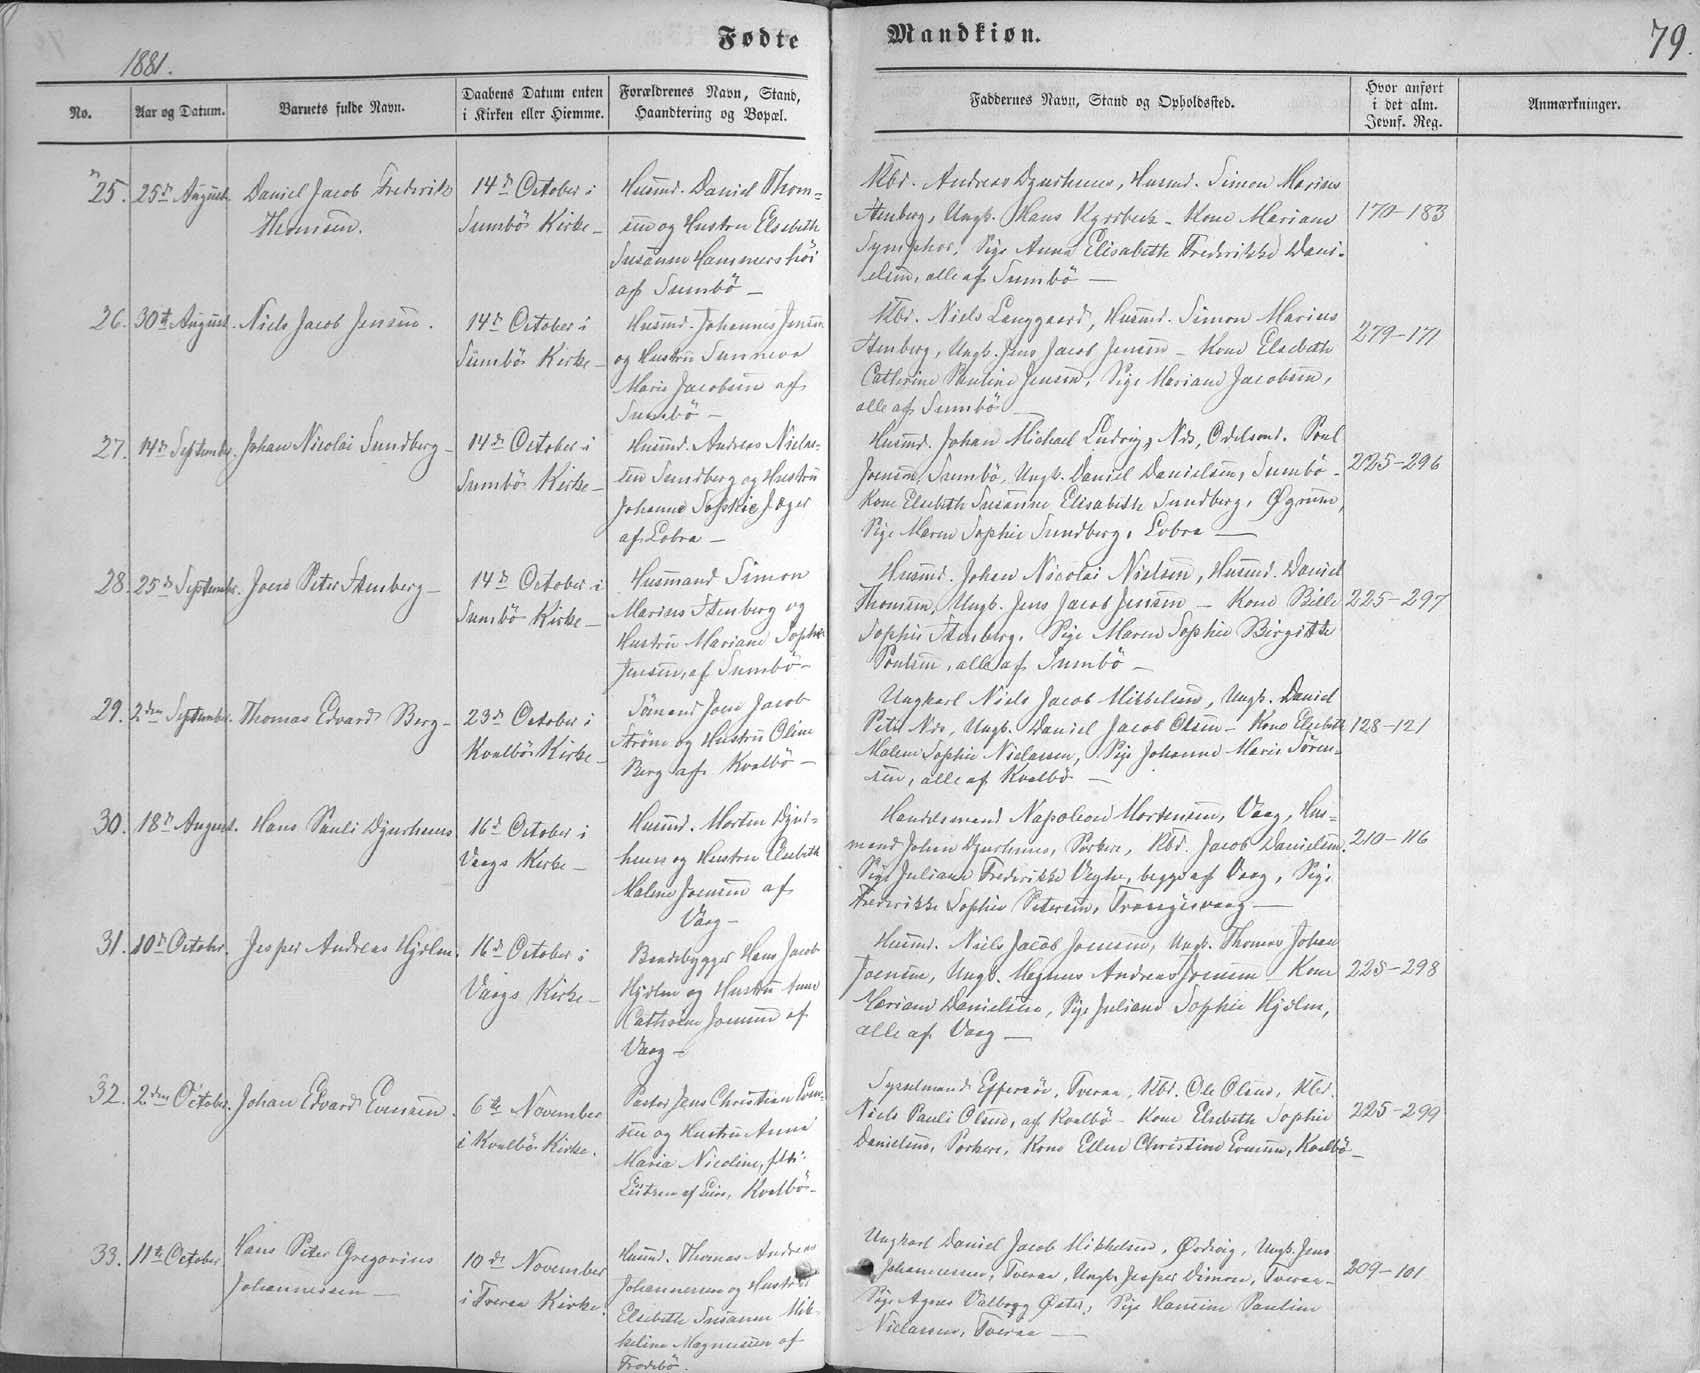 Fødte
Mandkiøn.
79.
1881.
No.
Aar og Datum.
Barnets fulde Navn.
Daabens Datum enten
i Kirken eller Hiemme.
Forældrenes Navn, Stand,
Haandtering og Bopæl.
Faddernes Navn, Stand og Opholdssted.
Hvor anført
i det alm.
Jevnf. Reg.
Anmærkninger.
25.
25de August.
Daniel Jacob Frederik
Thomsen.
14de October i
Sumbö Kirke -
Husmd. Daniel Thom=
sen og Hustru Elsebeth
Susanne Hammershöi
af Sumbö -
Kbd. Andreas Djurhuus, Husmd. Simon Marius
Stenberg, Ungk. Hans Kjærbeck - Kone Mariane
Symphor, Pige Anna Elisabeth Frederikke Dani-
elsen, alle af Sumbö -
170-183
26.
30te August.
Niels Jacob Jensen.
14de October i
Sumbö Kirke -
Husmd. Johannes Jensen
og Hustru Sunneva
Marie Jacobsen af
Sumbö -
Kbd. Niels Langgaard, Husmd. Simon Marius
Stenberg, Ungk. Jens Jacob Jensen - Kone Elsebeth
Cathrine Pauline Jensen, Pige Mariane Jacobsen,
alle af Sumbö -
279-171
27.
14de September.
Johan Nicolai Sundberg -
14de October i
Sumbö Kirke -
Husmd. Andreas Niclas-
sen Sundberg og Hustru
Johanne Sophie Jæger
af Lobra -
Husmd. Johan Michael Ludvig, Nes, Odelsmd. Poul
Joensen, Sumbö, Ungk. Daniel Danielsen, Sumbö -
Kone Elsebeth Susanne Elisabeth Sundberg, Øgrum,
Pige Maren Sophie Sundberg, Lobra -
225-296
28.
25de September.
Joen Peter Stenberg -
14de October i
Sumbö Kirke -
Husmand Simon
Marius Stenberg og
Hustru Mariane Sophie
Jensen, af Sumbö -
Husmd. Johan Nicolai Nielsen, Husmd. Daniel
Thomsen, Ungk. Jens Jacob Jensen - Kone Bille
Sophie Stenberg, Pige Maren Sophie Birgitte
Poulsen, alle af Sumbö -
225-297
29.
2den September.
Thomas Edvard Berg -
23de October i
Kvalbö Kirke -
Sömand Joen Jacob
Ström og Hustru Oline
Berg af Kvalbö -
Ungkarl Niels Jacob Mikkelsen, Ungk. Daniel
Peter Nes, Ungk. Daniel Jacob Olsen - Kone Elsebeth
Malene Sophie Niclasen, Pige Johanne Marie Sören-
sen, alle af Kvalbö -
128-121
30.
18de August.
Hans Pauli Djurhuus
16de October i
Vaags Kirke -
Husmd. Morten Djur-
huus og Hustru Elsebeth
Malene Joensen af
Vaag -
Handelsmand Napoleon Mortensen, Vaag, Hus-
mand Johan Djurhuus, Porkere, Kbd. Jacob Danielsen,
Pige Juliane Frederikke Veyhe, begge af Vaag, Pige
Frederikke Sophie Petersen, Trangisvaag -
210-116
31.
10de Octobr.
Jesper Andreas Hjelm.
16de October i
Vaags Kirke -
Baadebygger Hans Jacob
Hjelm og Hustru Anne
Cathrine Joensen af
Vaag -
Husmd. Niels Jacob Joensen, Ungk. Thomas Johan
Joensen, Ungk. Magnus Andreas Joensen - Kone
Mariane Danielsen, Pige Juliane Sophie Hjelm,
alle af Vaag -
225-298
32.
2den October.
Johan Edvard Evensen.
6te November
i Kvalbö Kirke.
Pastor Jens Christian Even-
sen og Hustru Anna
Maria Nicoline,
Kvalbö -
Sysselmand Effersöe, Tveraa, Kbd. Ole Olsen, Kbd.
Niels Pauli Olsen, af Kvalbö - Kone Elsebeth Sophie
Danielsen, Porkere, Kone Ellen Christine Evensen, Kvalbö -
225-299
33.
11te October.
Hans Peter Gregorius
Johannesen -
10de November
i Tveraa Kirke.
Husmd. Thomas Andreas
Johannesen og Hustru
Elsebeth Susanne Mik-
keline Magnussen af
Frodebö.
Ungkarl Daniel Jacob Mikkelsen, Ørdevig, Ungk. Jens
Johannesen, Tveraa, Ungk. Jesper Dimon, Tveraa -
Pige Agnes Valborg Øster, Pige Hansine Pauline
Niclasen, Tveraa -
209-101